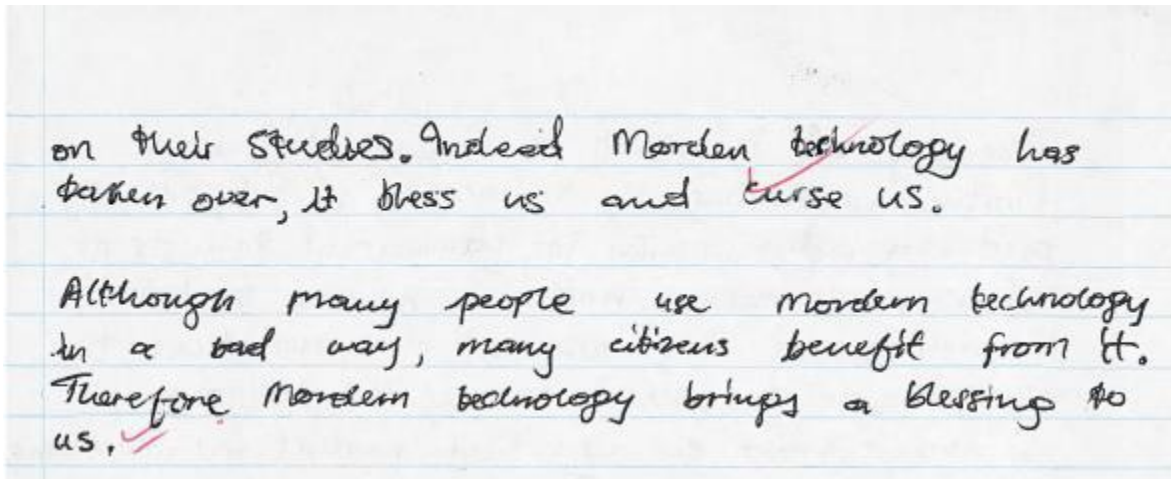 on their studies. Indeed Morden technology has
taken over, it bless us and curse us.
Although many people use mordern technology
in a bad way, many citizens benefit from it.
Therefore Mordern technology brings a blessing to
us.